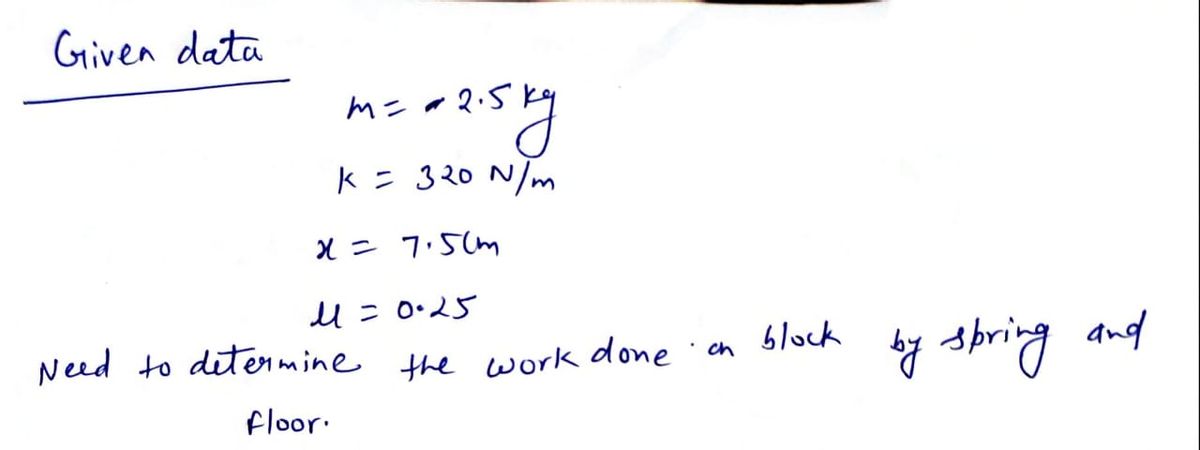 Given data
m = 2.5 kg
k = 320 N/m
x = 7.5cm
μ = 0.25
Need to determine the work done on block by spring and
floor.